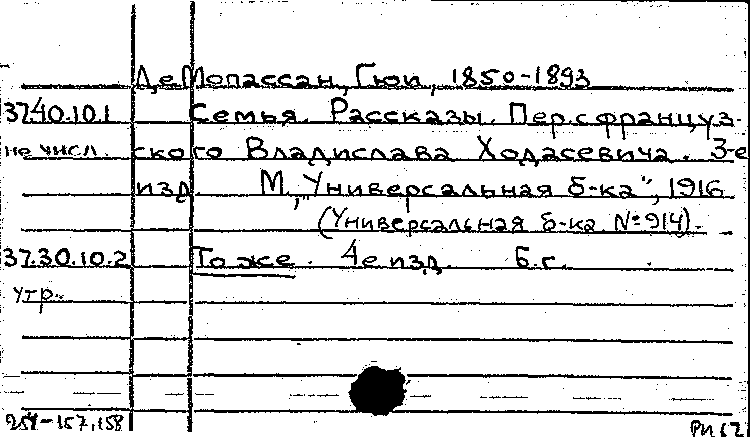 Де Мопассан, Гюи, 1850-1893
37.40.10.1 Семья. Рассказы. Пер. с француз-
не числ. ского Владислава Ходасевича. 3-е
изд. М., "Универсальная б-ка", 1916
(Универсальная б-ка № 914).
37.30.10.2 То же. 4е изд. Б.г.
утр.
254-157,158 РИ 62